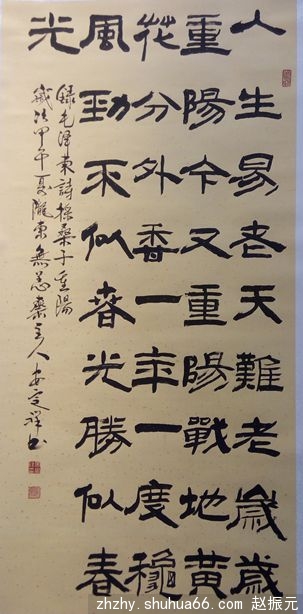 人生易老天難老歲歲
重陽今又重陽戰地黃
花分外香一年一度穐
風勁不似春光勝似春
光
録毛澤東詩採桑子重陽
歲次甲午夏隴東無恙齋主人安定祥书
zhzhy.shuhua66.com 赵振元